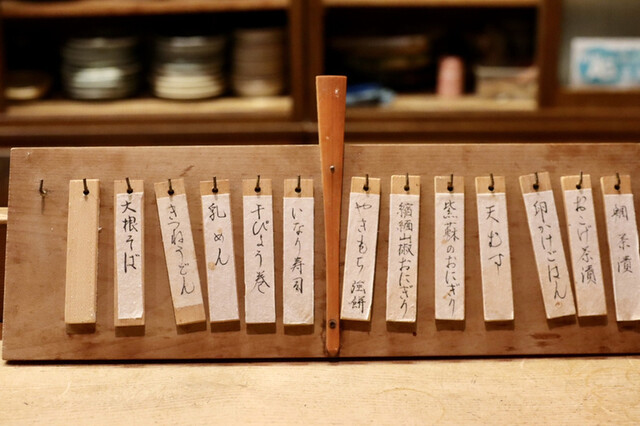 鯛茶漬
おこげ茶漬
卵かけごはん
天むす
紫蘇のおにぎり
縮緬山椒おにぎり
やきもち
いなり寿司
干ぴょう巻
乳めん
きつねうどん
大根そば